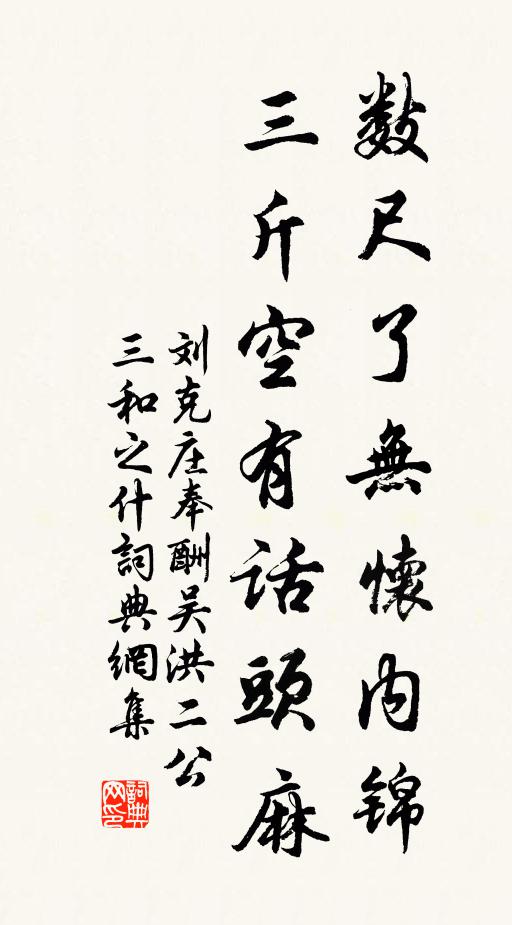 数尺了無懷内锦
三斤空有话頭麻
刘克庄奉酬吴洪二公
三和之什詞典網集
詞典
网印